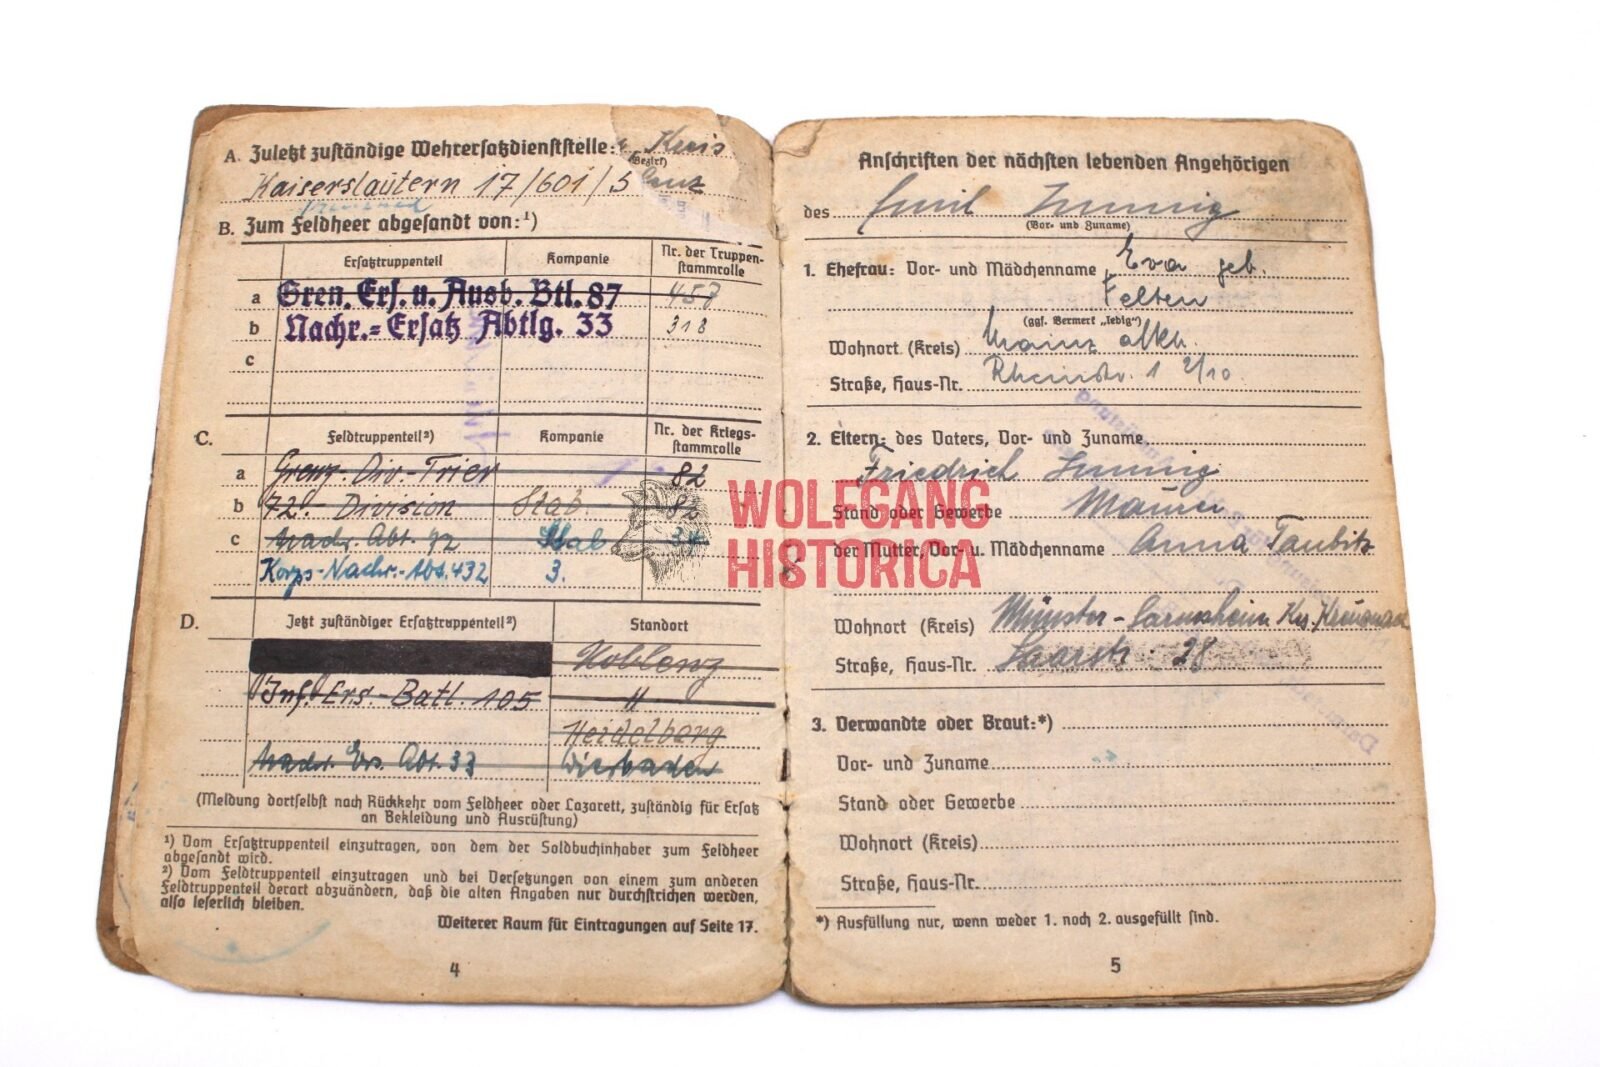 A. Zuletzt zuständige Wehrersatzdienststelle: Kreis
(Bezirk)
Kaiserslautern 17/601/5
B. Zum Feldheer abgesandt von:¹)
Ersatztruppenteil Kompanie Nr. der Truppen-
stammrolle
a Gren. Ers. u. Ausb. Btl. 87 457
b Nachr.-Ersatz Abtlg. 33 318
c
C. Feldtruppenteil²) Kompanie Nr. der Kriegs-
stammrolle
a Grenz-Div-Trier 82
b 72. Division Stab 82
c Nachr. Abt. 72 Stab 34
Korps-Nachr.-Abt. 432 3.
D. Jetzt zuständiger Ersatztruppenteil²) Standort
Koblenz
Inf. Ers.-Batl. 105 "
Heidelberg
Nachr. Ers. Abt. 33 Wiesbaden
(Meldung dortselbst nach Rückkehr vom Feldheer oder Lazarett, zuständig für Ersatz
an Bekleidung und Ausrüstung)
¹) Vom Ersatztruppenteil einzutragen, von dem der Soldbuchinhaber zum Feldheer
abgesandt wird.
²) Vom Feldtruppenteil einzutragen und bei Versetzungen von einem zum anderen
Feldtruppenteil derart abzuändern, daß die alten Angaben nur durchstrichen werden,
also leserlich bleiben.
Weiterer Raum für Eintragungen auf Seite 17.
4
Anschriften der nächsten lebenden Angehörigen
des Emil
(Vor- und Zuname)
1. Ehefrau: Vor- und Mädchenname Eva geb.
Felten
(ggf. Vermerk „ledig“)
Wohnort (Kreis) Mainz
Straße, Haus-Nr. Rheinstr. 1 2/10
2. Eltern: des Vaters, Vor- und Zuname
Friedrich
Stand oder Gewerbe Maurer
der Mutter, Vor- u. Mädchenname Anna Taubitz
Wohnort (Kreis) Münster-Sarmsheim Krs. Kreuznach
Straße, Haus-Nr. Saarstr. 28
3. Verwandte oder Braut:*)
Vor- und Zuname
Stand oder Gewerbe
Wohnort (Kreis)
Straße, Haus-Nr.
*) Ausfüllung nur, wenn weder 1. noch 2. ausgefüllt sind.
5
WOLFGANG
HISTORICA